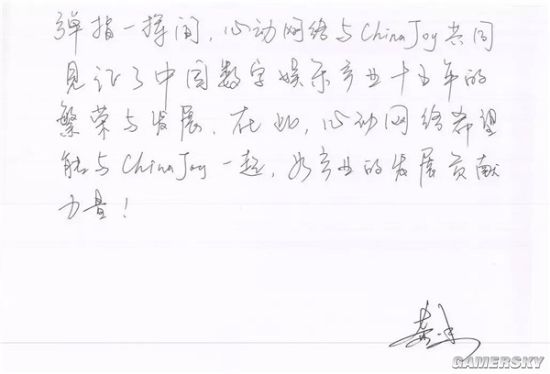 弹指一挥间，心动网络与ChinaJoy共同
见证了中国数字娱乐产业十五年的
繁荣与发展。在此，心动网络希望
能与ChinaJoy一起，为产业的发展贡献
力量！
GAMERSKY